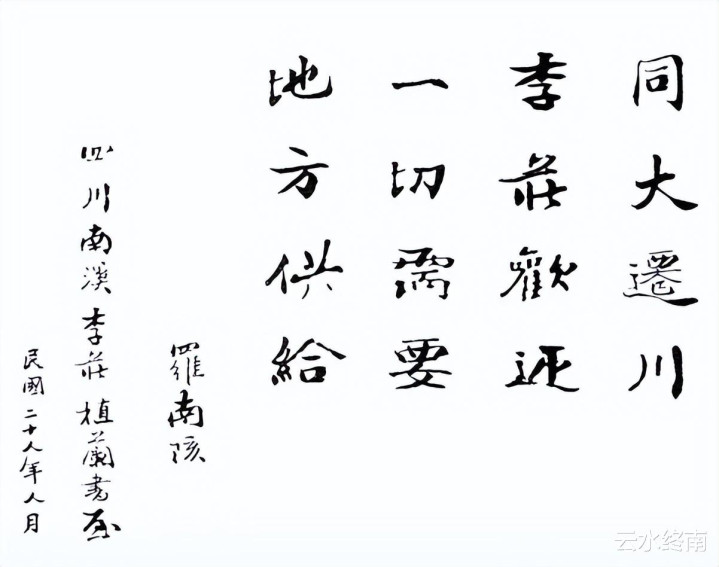 同大遷川
李莊歡迎
一切需要
地方供給
羅南陔
四川南溪李莊植蘭書屋
民國二十八年八月
云水终南